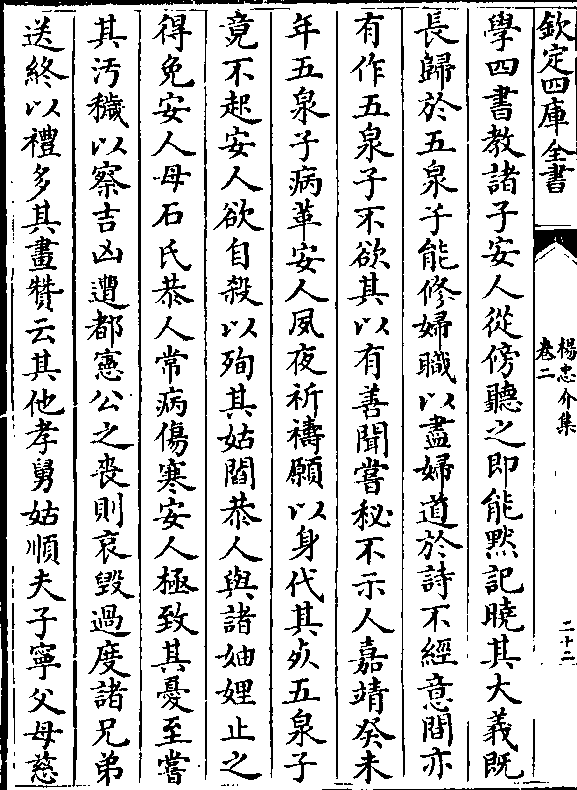 欽定四庫全書
楊忠介集
卷二
二十二
學四書教諸子安人從傍聽之即能黙記曉其大義既
長歸於五泉子能修婦職以盡婦道於詩不經意間亦
有作五泉子不欲其以有善聞嘗秘不示人嘉靖癸未
年五泉子病革安人夙夜祈禱願以身代其死五泉子
竟不起安人欲自殺以殉其姑閻恭人與諸妯娌止之
得免安人母石氏恭人常病傷寒安人極致其憂至嘗
其汚穢以察吉凶遭都憲公之喪則哀毀過度諸兄弟
送終以禮多其畫贊云其他孝舅姑順夫子寧父母慈